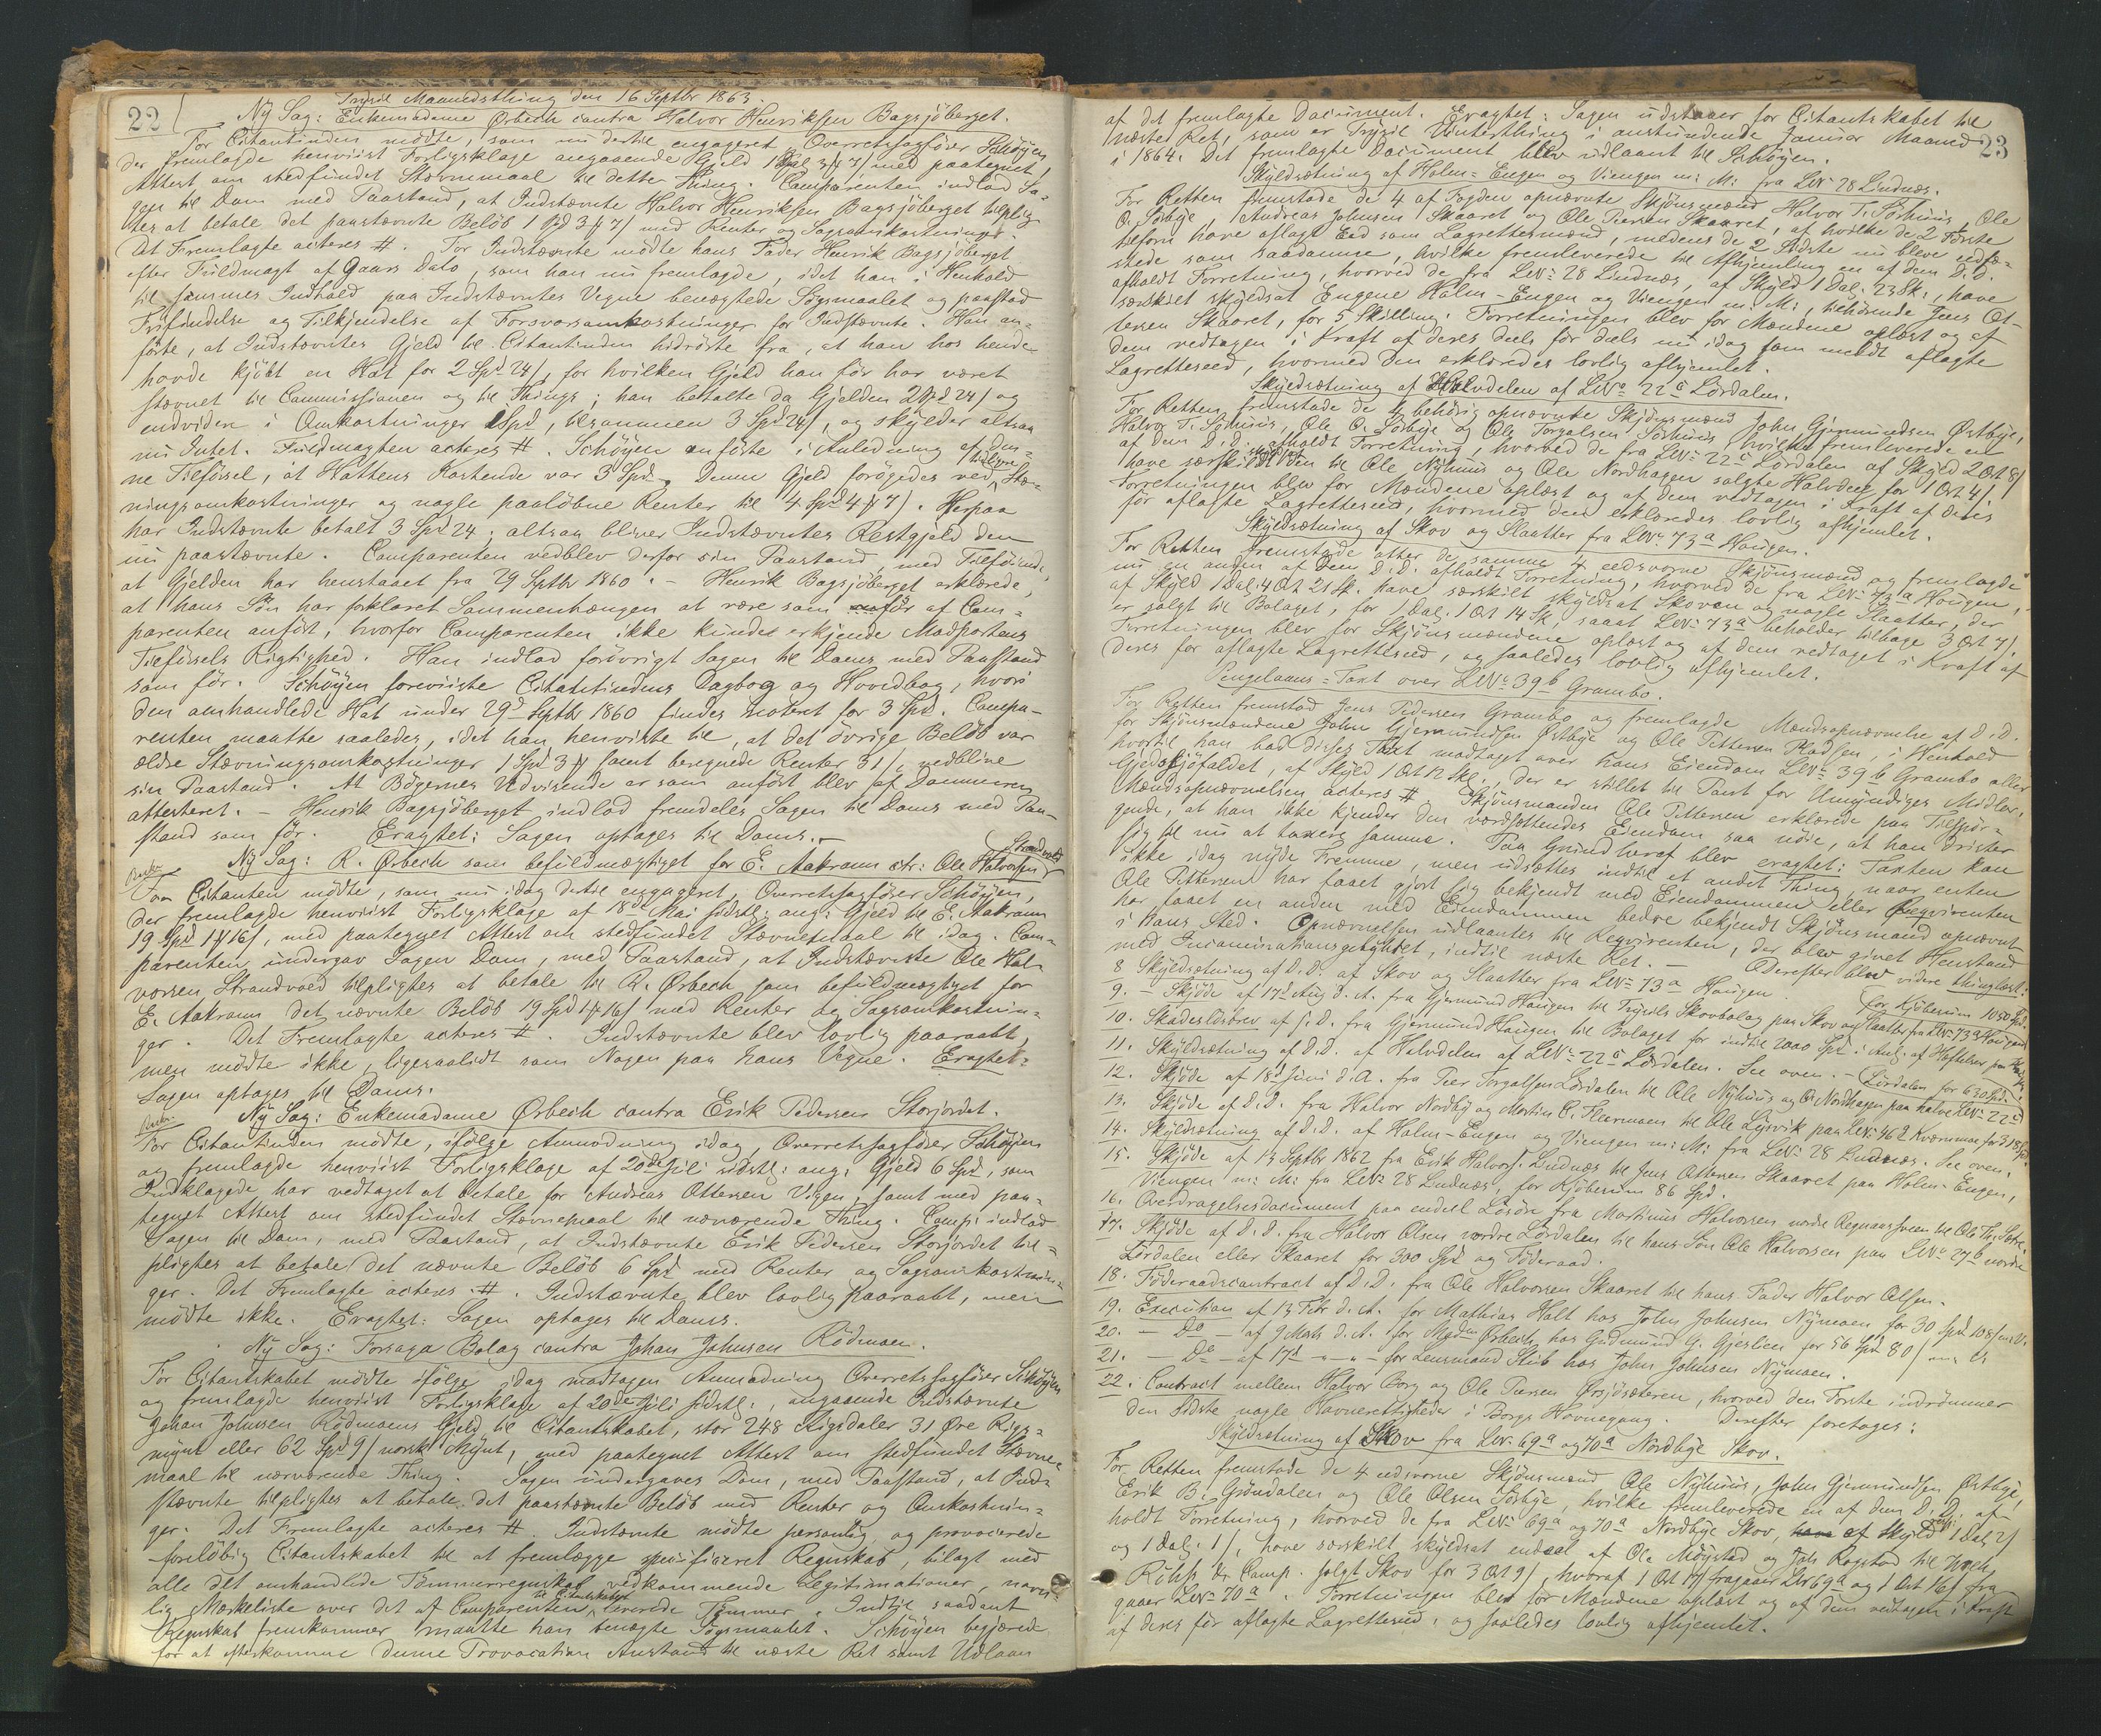 22
Trysil Maanedsthing den 16 Septbr 1863.
Ny Sag: Enkemadame Ørbech contra Halvor Henriksen Bagsjöberget.
For Citantinden mödte, som nu dertil engageret Overretssagförer Schöyen,
der fremlagde henviist Forligsklage angaaende Gjeld 1 Spd 3 # 7 / med paategnet
Attest om stedfundet Stævnemaal til dette Thing. Comparenten indlod Sa-
gen til Dom med Paastand, at Indstævnte Halvor Henriksen Bagsjöberget tilplig-
tes at betale det paastævnte Belöb 1 Spd 3 # 7 / med Renter og Sagsomkostninger.
Det Fremlagte acteres #. For Indstævnte mödte hans Fader Henrik Bagsjöberget
efter Fuldmagt af Gaars Dato, som han nu fremlagde, idet han i Henhold
til sammes Indhold paa Indstævntes Vegne benægtede Sögsmaalet og paastod
Frifindelse og Tilkjendelse af Forsvarsomkostninger for Indstævnte. Han an-
förte, at Indstævntes Gjeld til Citantinden hidrörte fra, at han hos hende
havde kjöbt en Hat for 2 Spd. 24 /, for hvilken Gjeld han för har været
stævnet til Commissionen og til Things; han betalte da Gjelden 2 Spd 24 / og
endvidere i Omkostninger 1 Spd, tilsammen 3 Spd 24 /, og skylder altsaa
nu Intet. Fuldmagten acteres #. Schöyen anförte i Anledning af den-
ne Tilförsel, at Hattens Kostende var 3 Spd. Denne Gjeld forögedes ved tidligere Stæv-
ningsomkostninger og nogle paalöbne Renter til 4 Spd 4 # 7 /. Herpaa
har Indstævnte betalt 3 Spd 24; altsaa bliver Indstævntes Restgjeld den
nu paastævnte. Comparenten vedblev derfor sin Paastand, med Tilföiende,
at Gjelden har henstaaet fra 29 Septbr 1860. - Henrik Bagsjöberget erklærede,
at hans Sön har forklaret Sammenhængen at være som för af Com-
parenten anfört, hvorfor Comparenten ikke kunde erkjende Modpartens
Tilförsels Rigtighed. Han indlod forövrigt Sagen til Doms med Paastand
som för. Schöyen foreviiste Citantindens Dagbog og Hovedbog, hvori
den omhandlede Hat under 29d Septbr 1860 findes noteret for 3 Spd. Compa-
renten maatte saaledes, idet han henviiste til, at det övrige Belöb var
ældre Stævningsomkostninger 1 Spd 3 # samt beregnede Renter 31 /, vedblive
sin Paastand. At Bögernes Udvisende er som anfört blev af Dommeren
attesteret. - Henrik Bagsjöberget indlod fremdeles Sagen til Doms med Paa-
stand som för. Eragtet: Sagen optages til Doms. -
Ny Sag: R. Ørbech som befuldmægtiget for E. Aakrann ctr: Ole Halvorsen Strandvold
For Citanten mödte, som nu idag dertil engageret, Overretssagförer Schöyen,
der fremlagde henviist Forligsklage af 18de Mai sidstl: ang: Gjeld til E. Aakrann
19 Spd 1 # 16 /, med paategnet Attest om stedfundet Stævnemaal til idag. Com-
parenten undergav Sagen Dom, med Paastand, at Indstævnte Ole Hal-
vorsen Strandvold tilpligtes at betale til R. Ørbech som befuldmægtiget for
E. Aakrann det nævnte Belöb 19 Spd 1 # 16 / med Renter og Sagsomkostnin-
ger. Det Fremlagte acteres #. Indstævnte blev lovlig paaraabt,
men mödte ikke, ligesaalidt som Nogen paa hans Vegne. Eragtet:
Sagen optages til Doms.
Ny Sag: Enkemadame Ørbech contra Erik Pedersen Storjordet.
For Citantinden mödte, ifölge Anmodning idag, Overretssagförer Schöyen
og fremlagde henviist Forligsklage af 20de Juli sidstl: ang: Gjeld 6 Spd, som
Indklagede har vedtaget at betale for Andreas Ottersen Vigen, samt med paa-
tegnet Attest om stedfundet Stævnemaal til nærværende Thing. Comp: indlod
Sagen til Dom, med Paastand, at Indstævnte Erik Pedersen Storjordet til-
pligtes at betale det nævnte Belöb 6 Spd med Renter og Sagsomkostnin-
ger. Det Fremlagte acteres #. Indstævnte blev lovlig paaraabt, men
mödte ikke. Eragtet: Sagen optages til Doms.
Ny Sag: Forsaga Bolag contra Johan Johnsen Rödmoen.
For Citantskabet mödte ifölge idag modtagen Anmodning Overretssagförer Schöyen
og fremlagde henviist Forligsklage af 20de Juli sidstl:, angaaende Indstævnte
Johan Johnsen Rödmoens Gjeld til Citantskabet, stor 248 Rigsdaler 31 Øre Rigs-
mynt eller 62 Spd 9 / norsk Mynt, med paategnet Attest om stedfundet Stævne-
maal til nærværende Thing. Sagen undergaves Dom, med Paastand, at Ind-
stævnte tilpligtes at betale det paastævnte Belöb med Renter og Omkostnin-
ger. Det Fremlagte acteres #. Indstævnte mödte personlig og provocerede
foreløbig Citantskabet til at fremlægge specificeret Regnskab, bilagt med
alle det omhandlede Tömmerregnskab vedkommende Legitimationer, navn-
lig Mærkeliste over det af Comparenten til Citantskabet leverede Tömmer. Indtil saadant
Regnskab fremkommer maatte han benægte Sögsmaalet. Schöyen begjærede
for at efterkomme denne Provocation Anstand til næste Ret samt Udlaan
23
af det fremlagte Document. Eragtet: Sagen udstaaer for Citantskabet til
næste Ret, som er Trysil Vinterthing i anstundende Januar Maaned
i 1864. Det fremlagte Document blev udlaant til Schöyen.
Skyldsætning af Holm-Engen og Viengen m: M: fra LNr 28 Lindnæs.
For Retten fremstode de 4 af Fogden opnævnte Skjönsmænd Halvor T. Sörhuus, Ole
O. Sörbye, Andreas Johnsen Skaaret og Ole Peersen Skaaret, af hvilke de 2 Förste
tilforn have aflagt Eed som Lagrettesmænd, medens de 2 Sidste nu bleve edfæ-
stede som saadanne, hvilke fremleverede til Afhjemling en af dem d. D.
afholdt Forretning, hvorved de fra LNr 28 Lindnæs, af Skyld 1 Dal. 23 Sk:, have
særskilt skyldsat Engene Holm-Engen og Viengen m: M:, tilhörende Jens Ot-
tersen Skaaret, for 5 Skilling. Forretningen blev for Mændene oplæst og af
dem vedtagen i Kraft af deres deels för deels nu idag som meldt aflagte
Lagretteseed, hvormed den erklæredes lovlig afhjemlet.
Skyldsætning af Halvdelen af LNr 22c Lördalen.
For Retten fremstode de 4 behörig opnævnte Skjönsmænd John Gjermundsen Østbye,
Halvor T. Sörhuus, Ole O. Sörbye og Ole Torgalsen Sörhuus, hvilke fremleverede en
af dem d. D. afholdt Forretning, hvorved de fra LNr 22c Lördalen af Skyld 2 Ort 8 /
have særskilt skyldsat den til Ole Nyhuus og Ole Nordhagen solgte Halvdeel for 1 Ort 4 /.
Forretningen blev for Mændene oplæst og af dem vedtagen i Kraft af deres
för aflagte Lagretteseed, hvormed den erklæredes lovlig afhjemlet.
Skyldsætning af Skov og Slaatter fra LNr 73a Haugen.
For Retten fremstode atter de samme 4 eedsvorne Skjönsmænd og fremlagde
nu en anden af dem d. D. afholdt Forretning, hvorved de fra LNr 73a Haugen,
af Skyld 1 Dal. 4 Ort 21 Sk. have særskilt skyldsat Skoven og nogle Slaatter, der
er solgt til Bolaget, for 1 Dal. 1 Ort 14 Sk, saaat LNr 73a beholder tilbage 3 Ort 7 /.
Forretningen blev for Skjönsmændene oplæst og af dem vedtaget i Kraft af
deres för aflagte Lagretteseed, og saaledes lovlig afhjemlet.
Pengelaans-Taxt over LNr 39b Grambo.
For Retten fremstod Jens Pedersen Grambo og fremlagde Mandsopnævnelse af d. D.
for Skjönsmændene John Gjermundsen Østbye og Ole Pettersen Pladsen, i Henhold
hvortil han bad disses Taxt modtaget over hans Eiendom LNr 39b Grambo eller
Gjedskjöfaldet, af Skyld 1 Ort 12 Skl:, der er stillet til Pant for Umyndiges Midler.
Mandsopnævnelsen acteres # Skjönsmanden Ole Pettersen erklærede paa Tilspör-
gende, at han ikke kjender den værdsettendes Eiendom saa nöie, at han drister
sig til nu at taxere samme. Paa Grund heraf blev eragtet: Taxten kan
ikke idag nyde Fremme, men udsættes indtil et andet Thing, naar enten
Ole Pettersen har faaet gjort sig bekjendt med Eiendommen eller Reqvirenten
har faaet en anden med Eiendommen bedre bekjendt Skjönsmand opnævnt
i hans Sted. Opnævnelsen udlaantes til Reqvirenten, der blev givet Henstand
med Incaminationsgebyhret, indtil næste Ret. - Derefter blev videre thinglæst:
8 Skyldsætning af d. D. af Skov og Slaatter fra LNr 73a Haugen.
9. - Skjöde af 17d Aug d. A. fra Gjermund Haugen til Trysils Skovbolag paa Skov og Slaatter fra LNr 73a Haugen for Kjöbesum 1050 Spd.
10. Skadeslösbrev af s. D. fra Gjermund Haugen til Bolaget for indtil 2000 Spd i Anl. af Heftelser paa
11. Skyldsætning af d. D. af Halvdelen af LNr 22c Lördalen. See oven. -
12. Skjöde af 18d Juni d. A. fra Peer Torgalsen Lördalen til Ole Nyhuus og O. Nordhagen paa halve LNr 22c Lördalen for 630 Spd.
13. Skjöde af d. D. fra Halvor Nordby og Morten C. Flermoen til Ole Lysvik paa LNr 462 Kværnmoe for 318 Spd.
14. Skyldsætning af d. D. af Holm-Engen og Viengen m: M: fra LNr 28 Lindnæs. See oven.
15. Skjöde af 13 Septbr 1862 fra Erik Halvors. Lindnæs til Jens Ottersen Skaaret paa Holm-Engen,
Viengen m: M: fra LNr 28 Lindnæs, for Kjöbesum 86 Spd.
16. Overdragelsesdocument paa endeel Lösöre fra Martinus Halvorsen nordre Regnaassveen til Ole Th. Sætre.
17. Skjöde af d. D. fra Halvor Olsen nordre Lördalen til hans Sön Ole Halvorsen paa LNr 27b nordre
Lördalen eller Skaaret for 300 Spd og Föderaad.
18. Föderaadscontract af d. D. fra Ole Halvorsen Skaaret til hans Fader Halvor Olsen.
19. Execution af 13 Febr d. A. for Mathias Holt hos John Johnsen Nymoen for 30 Spd 108 / m: V.
20. - Do - af 9 Marts d. A. for Mad. Ørbech, hos Gudmund G. Gjeslien for 56 Spd 80 / m: V.
21. - Do - af 17d - " - " - for Lensmand Stub hos John Johnsen Nymoen.
22. Contract mellem Halvor Borg og Ole Persen Ørsjösæteren, hvorved den Förste indrömmer
den Sidste nogle Havnerettigheder i Borgs Havnegang. Derefter foretages:
Skyldsætning af Skov fra LNr 69a og 70a Nordbye Skov.
For Retten fremstode de 4 eedsvorne Skjönsmænd Ole Nyhuus, John Gjermundsen Østbye,
Erik B. Gröndalen og Ole Olsen Sörbye, hvilke fremleverede en af dem d. D. af-
holdt Forretning, hvorved de fra LNr 69a og 70a Nordbye Skov, af Skyld resp: 1 Dal 2 /
og 1 Dal: 1 /, have særskilt skyldsat endeel af Ole Möystad og Joh Rogstad til
Röhs & Comp. solgt Skov for 3 Ort 9 /, hvoraf 1 Ort 17 / fragaaer LNr 69a og 1 Ort 16 / fra-
gaaer LNr 70a. Forretningen blev for Mændene oplæst og af dem vedtagen i Kraft
af deres för aflagte Lagretteseed, og saaledes lovlig afhjemlet.